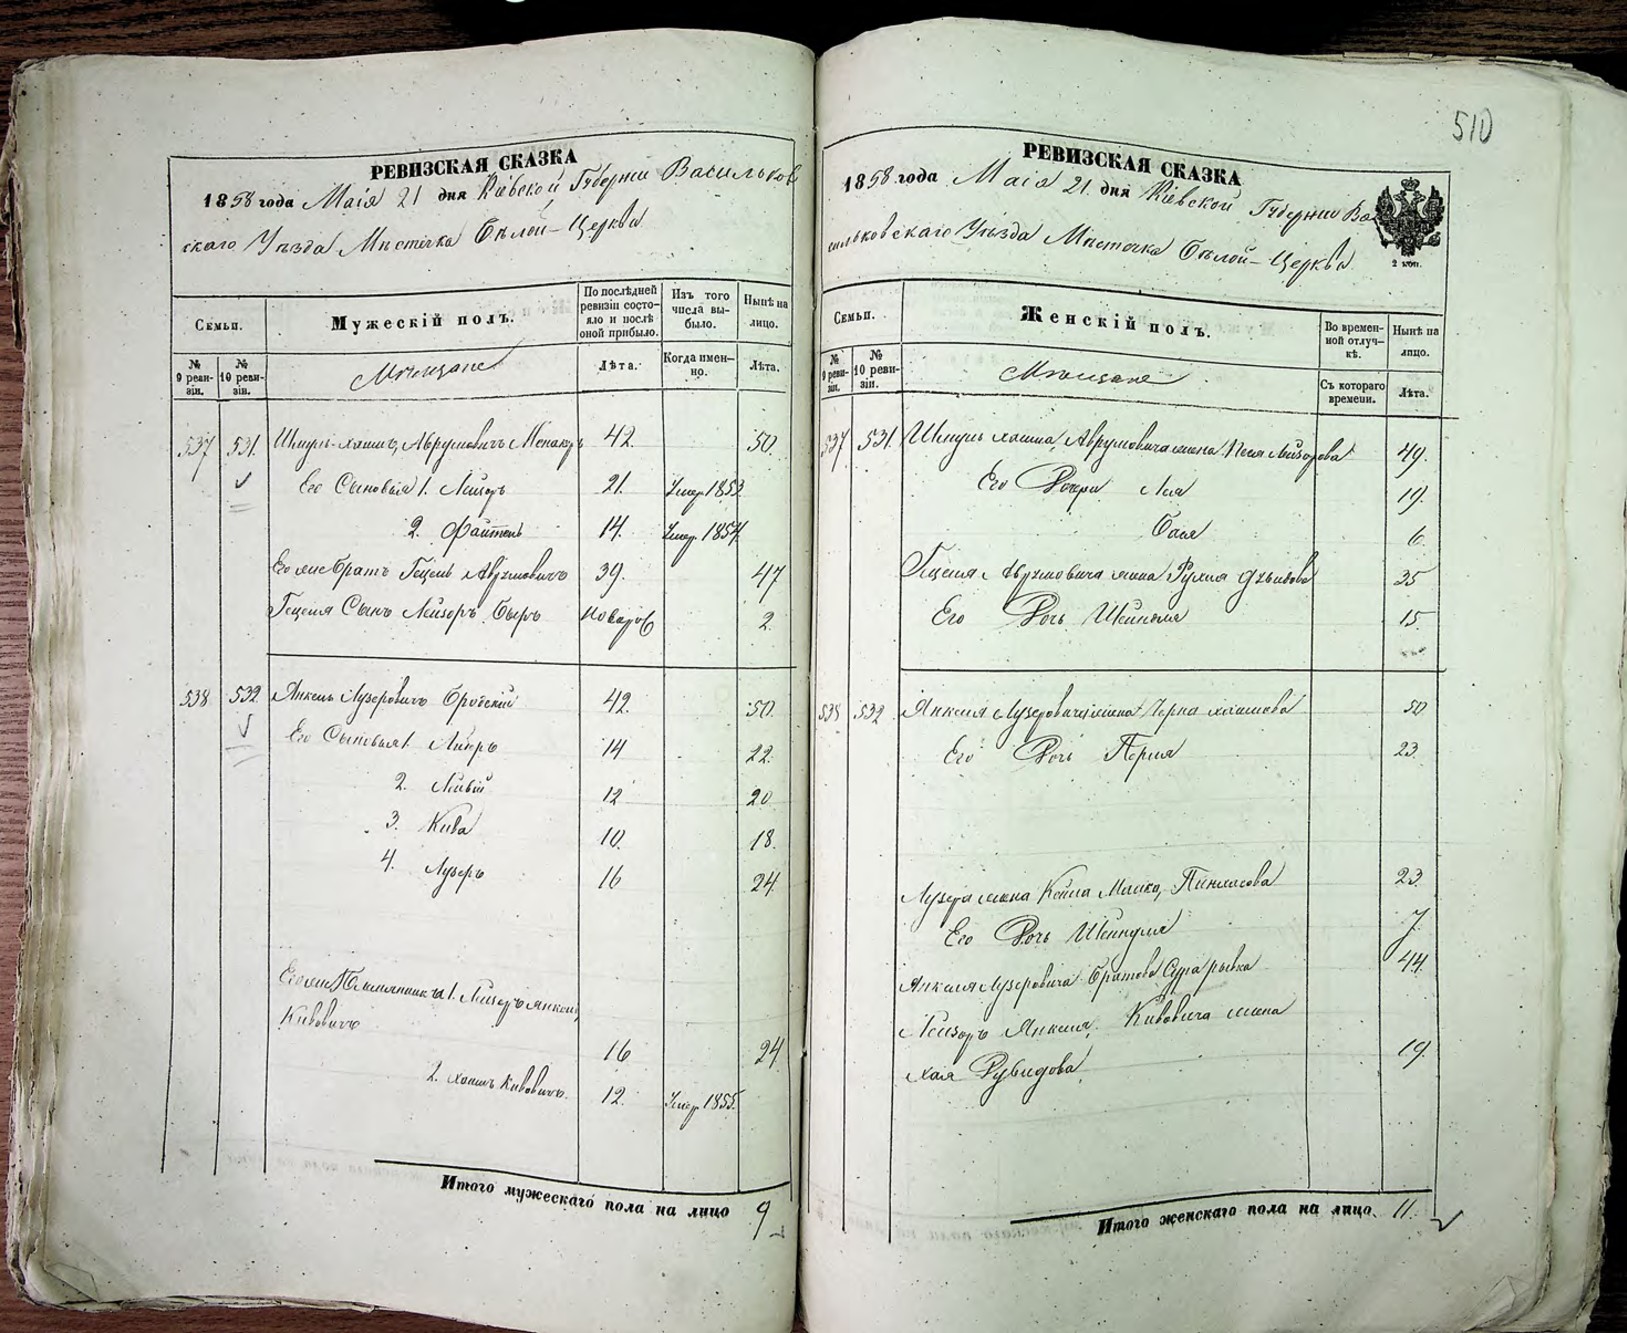 510
РЕВИЗСКАЯ СКАЗКА
1858 года Маія 21 дня Кіевской Губерніи Васильков
скаго Уѣзда Мѣстечка Бѣлой-Церкви
Семьи.
Мужескій полъ.
По послѣдней ревизіи состояло и послѣ оной прибыло.
Изъ того числа выбыло.
Нынѣ на лицо.
№ 9 ревизіи.
№ 10 ревизіи.
Мѣщане
Лѣта.
Когда именно.
Лѣта.
537 531 Шмуль Аврумовичъ 42. 50.
Его Сыновья 1. Лейзоръ 21. Умер. 1853
2. 14. Умер. 1854
Его же Братъ Гецель Аврумовичъ 39. 47
Гецеля Сынъ Лейзоръ Беръ новорож 2.
538 532 Янкель Лузеровичъ Бродскій 42. 50.
Его Сыновья 1. 14 22.
2. Лейвій 12 20
3. Кива 10. 18.
4. Лузеръ 16 24.
Его же Племянники 1. Лейзоръ Янкель
Кивовичъ
16 24
2. Хаимъ Кивовичъ. 12. Умер. 1855.
Итого мужескаго пола на лицо 9
РЕВИЗСКАЯ СКАЗКА
1858 года Маія 21 дня Кіевской Губерніи Ва
сильковскаго Уѣзда Мѣстечка Бѣлой-Церкви
2 коп.
Семьи.
Женскій полъ.
Во временной отлучкѣ.
Нынѣ на лицо.
№ 9 ревизіи.
№ 10 ревизіи.
Мѣщане
Съ котораго времени.
Лѣта.
537 531. Шмуля Хаима Аврумовича жена Песя Лейзорова 49.
Его Дочери Лея 19.
Бася 6.
Гецеля Аврумовича жена Рухля 35
Его Дочь Шейндля 15.
538 532 Янкеля Лузеровича жена Черна Хаимова 50
Его Дочь Перля 23.
Лузера жена Пинхасова 23.
Его Дочь 7.
Янкеля Лузеровича Братова Сура Рывка 44.
Лейзоръ Янкеля Кивовича жена
Хая Рувидова 19.
Итого женскаго пола на лицо. 11.